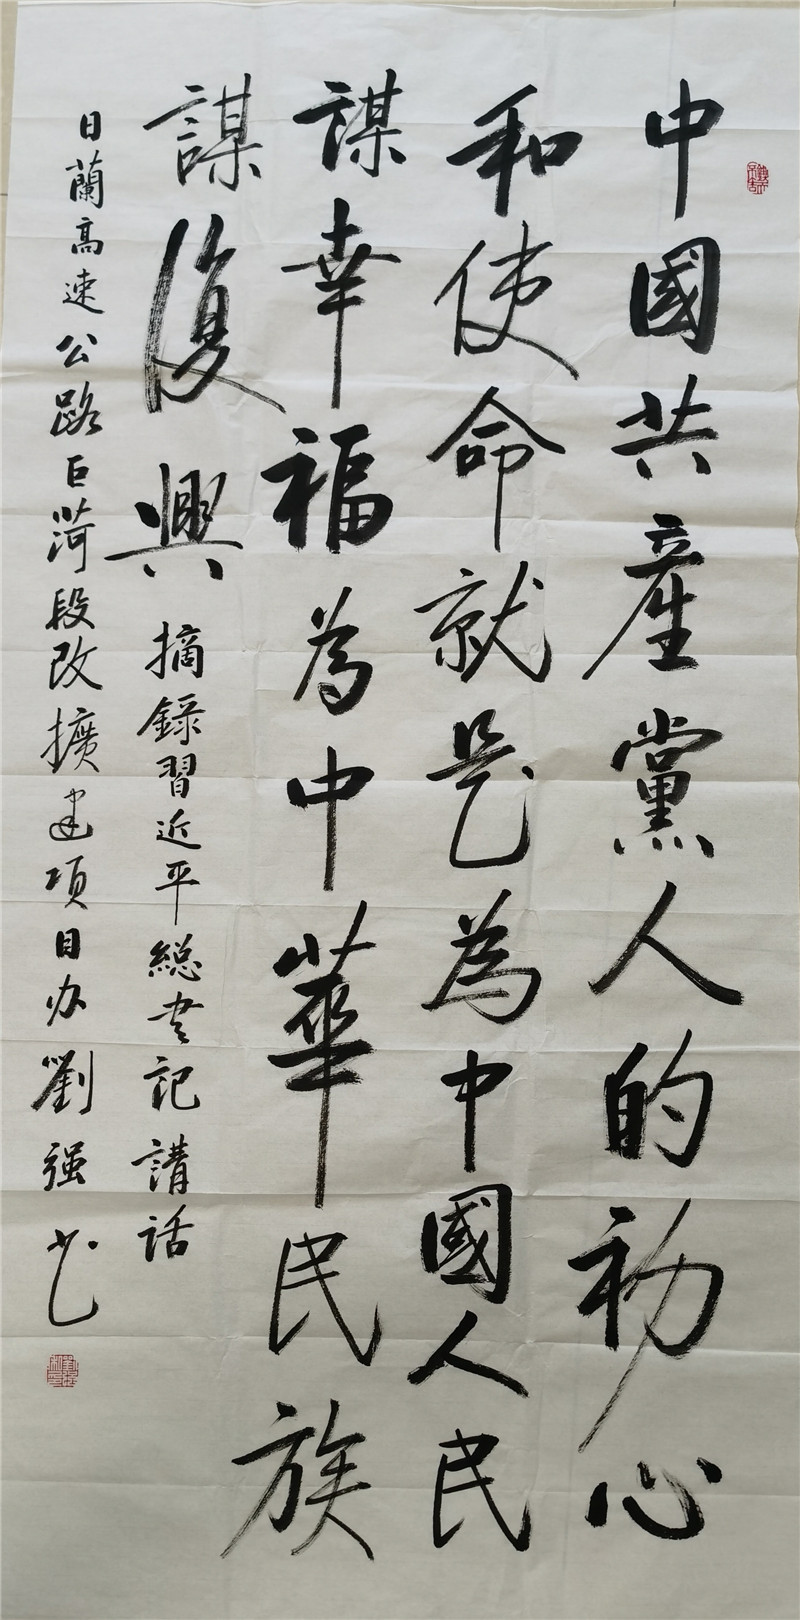 中國共產黨人的初心
和使命就是為中國人民
謀幸福為中華民族
謀復興
摘錄習近平総书记講話
日蘭高速公路巨菏段改擴建項目办劉强书